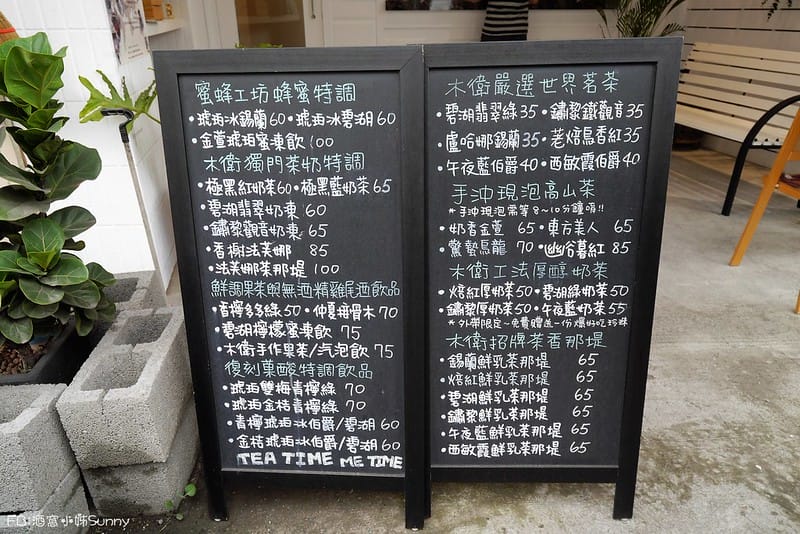 蜜蜂工坊蜂蜜特調
•琥珀冰錫蘭60 •琥珀冰碧湖60
•金萱琥珀蜜凍飲100
木衛獨門茶奶特調
•極黑紅奶茶60 •極黑藍奶茶65
•碧湖翡翠奶凍 60
•鏽黎觀音奶凍 65
•香榭法芙娜 85
•法芙娜茶那堤 100
鮮調果茶與無酒精雞尾酒飲品
•青檸多多綠50 •仲夏接骨木70
•碧湖檸檬蜜凍飲 75
•木衛手作果茶/汽泡飲75
復刻菓酸特調飲品
•琥珀雙梅青檸綠 70
•琥珀金桔青檸綠 70
•青檸琥珀冰伯爵/碧湖60
•金桔琥珀冰伯爵/碧湖60
TEA TIME ME TIME
木衛嚴選世界茗茶
•碧湖翡翠綠35 •鏽黎鐵觀音35
•盧哈娜錫蘭35 •荖焙烏香紅35
•午夜藍伯爵40 •西敏霞伯爵40
手沖現泡高山茶
*手沖現泡需等8~10分鐘唷!!
•奶香金萱 65 •東方美人 65
•驚艷烏龍 70 •幽谷暮紅 85
木衛工法厚醇奶茶
•焙紅厚奶茶50 •碧湖綠奶茶50
•鏽黎厚奶茶50 •午夜藍奶茶55
*外帶限定~免費贈送一份爆好吃珍珠
木衛招牌茶香那堤
•錫蘭鮮乳茶那堤 65
•焙紅鮮乳茶那堤 65
•碧湖鮮乳茶那堤 65
•鏽黎鮮乳茶那堤 65
•午夜藍鮮乳茶那堤 65
•西敏霞鮮乳茶那堤 65
FB:酒窩小姊Sunny